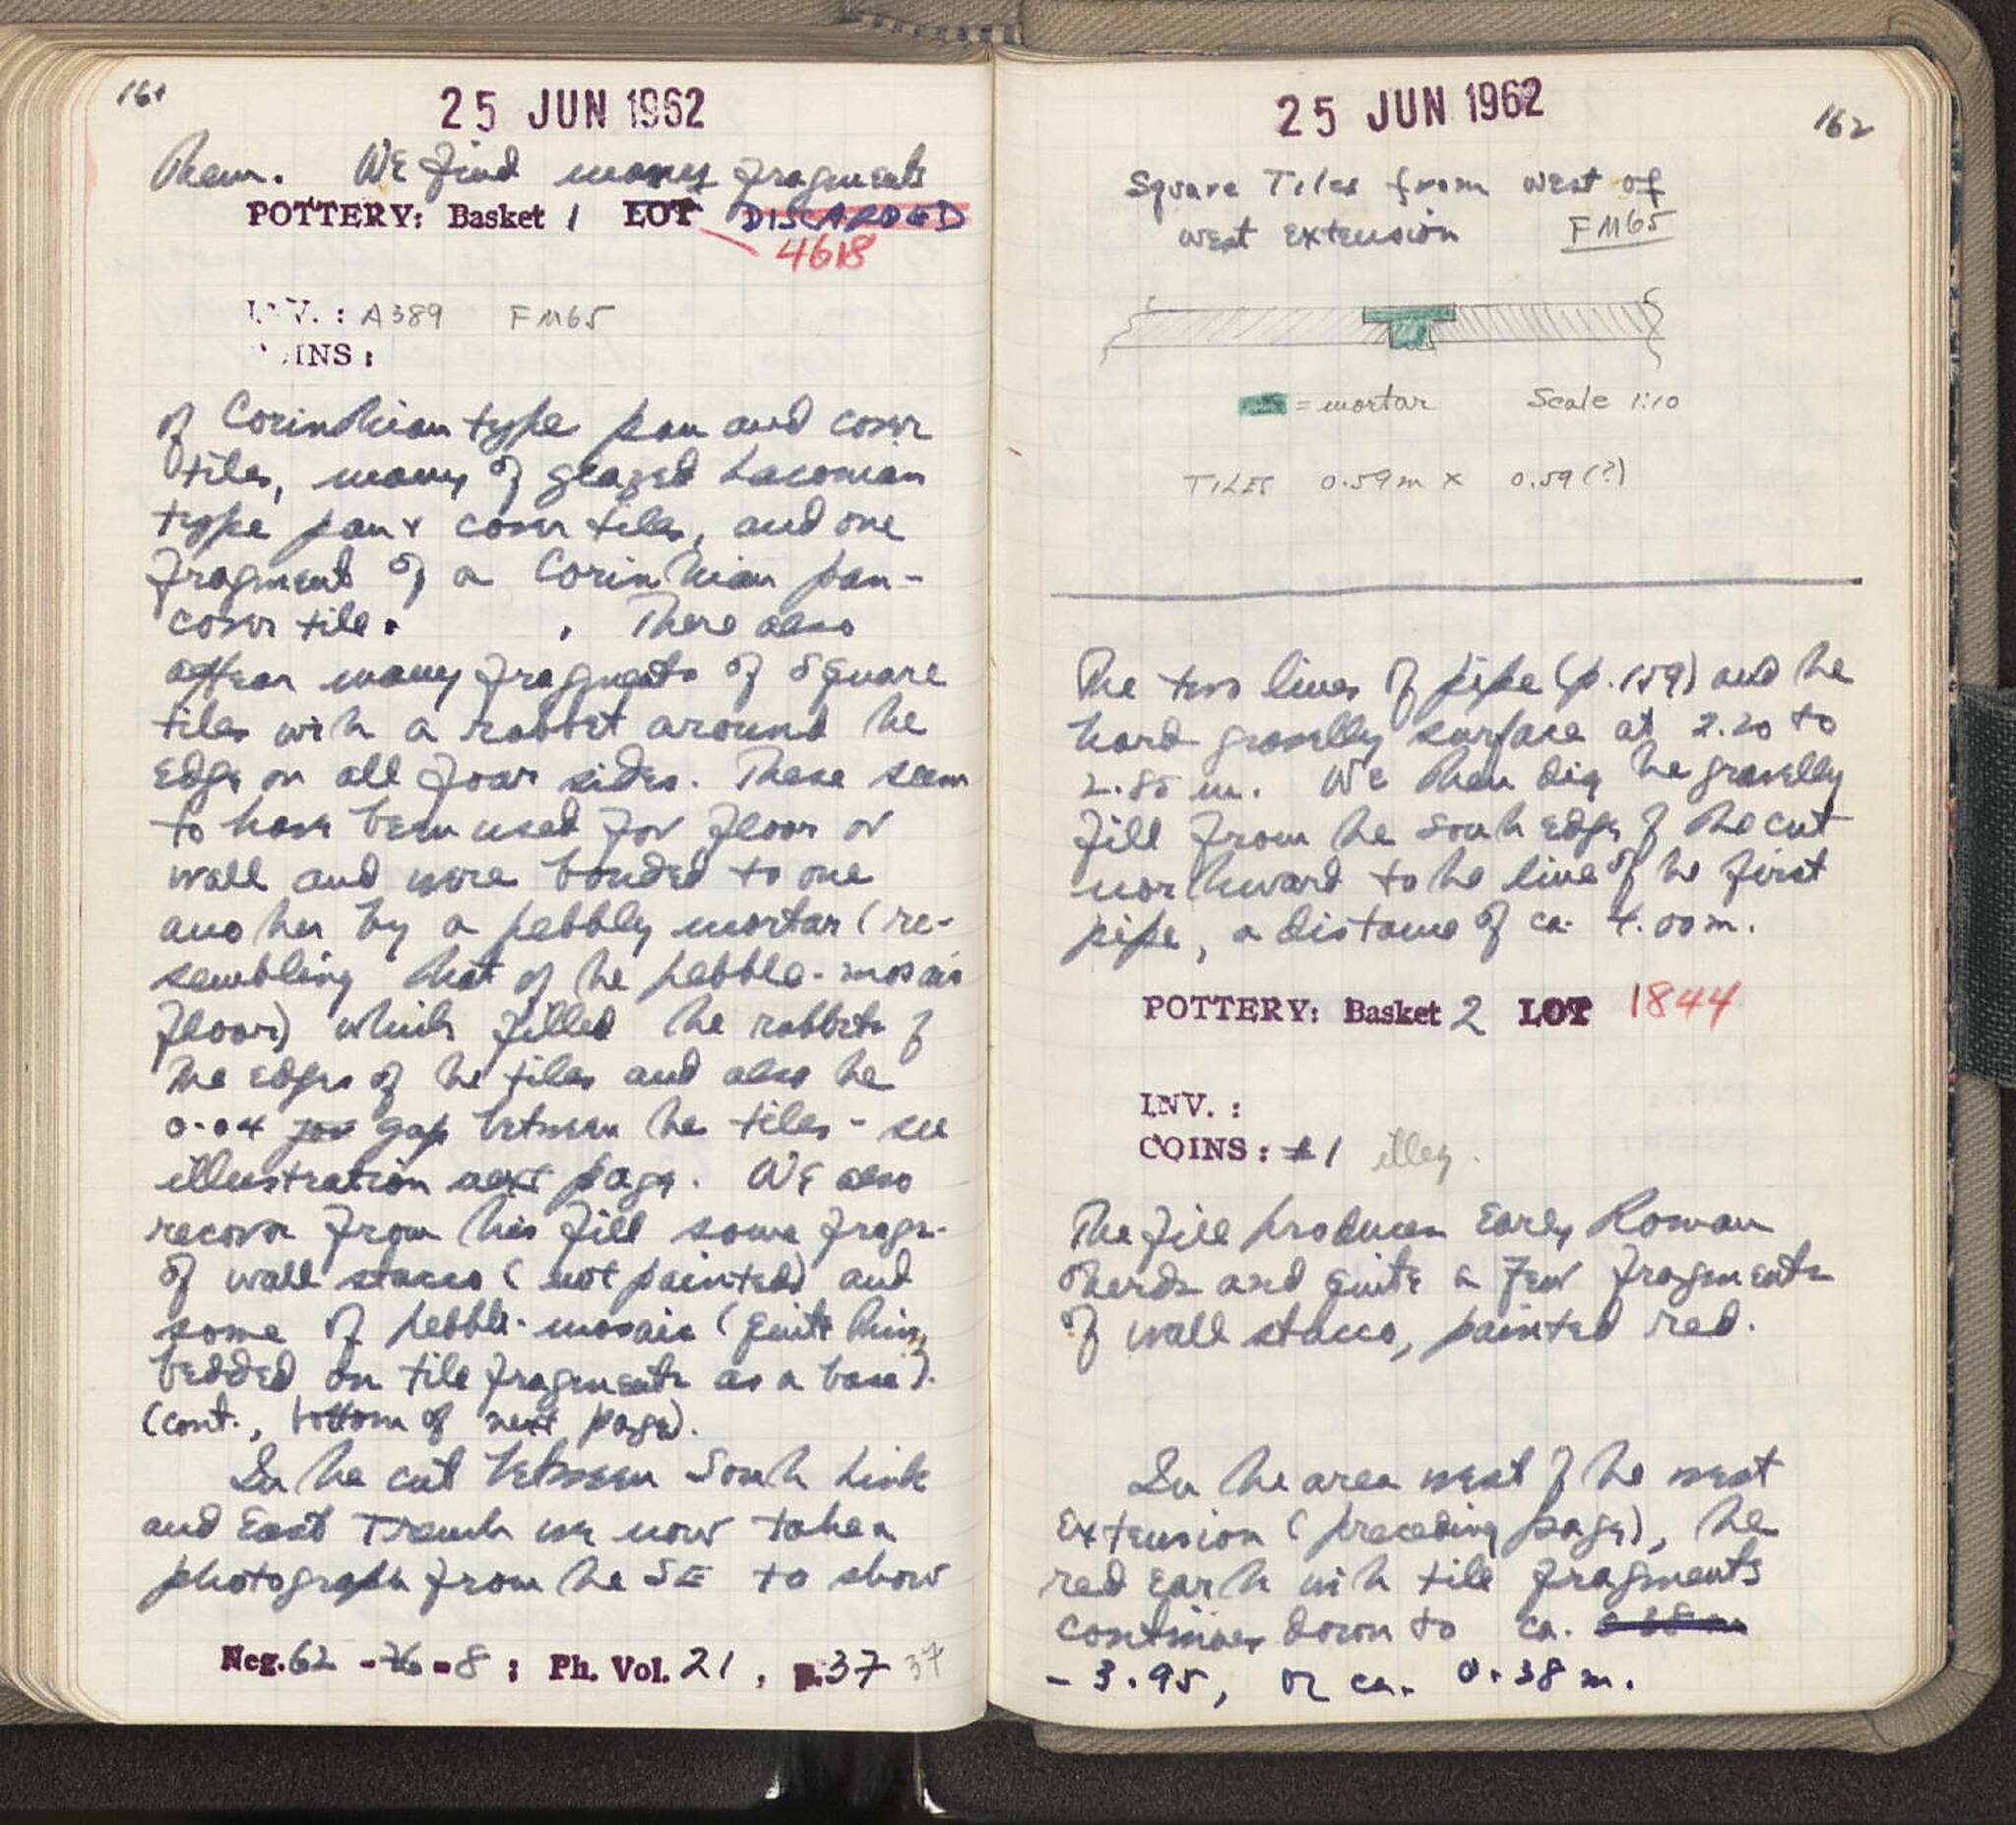 161
25 JUN 1962
them. We find many fragments
POTTERY: Basket 1 LOT DISCARDED
4618
INV. : A389 FM65
COINS :
of Corinthian type pan and cover
tiles, many of glazed Laconian
type pan & cover tiles, and one
fragment of a Corinthian pan-
cover tile. . There also
appear many fragments of square
tiles with a rabbet around the
edge on all four sides. These seem
to have been used for floor or
wall and were bonded to one
another by a pebbly mortar (re-
sembling that of the pebble-mosaic
floor) which filled the rabbets of
the edges of the tiles and also the
0.04 gap between the tiles - see
illustration next page. We also
recover from this fill some fragr.
of wall stucco (not painted) and
some of pebble-mosaic (quite thin,
bedded on tile fragments as a base).
(cont., bottom of next page).
In the cut between South Link
and East Trench we now take a
photograph from the SE to show
Neg. 62 - 76 - 8 ; Ph. Vol. 21 , p. 37 37
25 JUN 1962
162
Square Tiles from west of
west extension FM65
= mortar Scale 1:10
TILES 0.59m x 0.59 (?)
The two lines of pipe (p. 159) and the
hard gravelly surface at 2.20 to
2.85 m. We then dig the gravelly
fill from the south edge of the cut
northward to the line of the first
pipe, a distance of ca. 4.00m.
POTTERY: Basket 2 LOT 1844
INV. :
COINS : #1 illeg.
The fill produces Early Roman
sherds and quite a few fragments
of wall stucco, painted red.
In the area west of the west
extension (preceding page), the
red earth with tile fragments
continues down to ca.
- 3.95, or ca. 0.38 m.